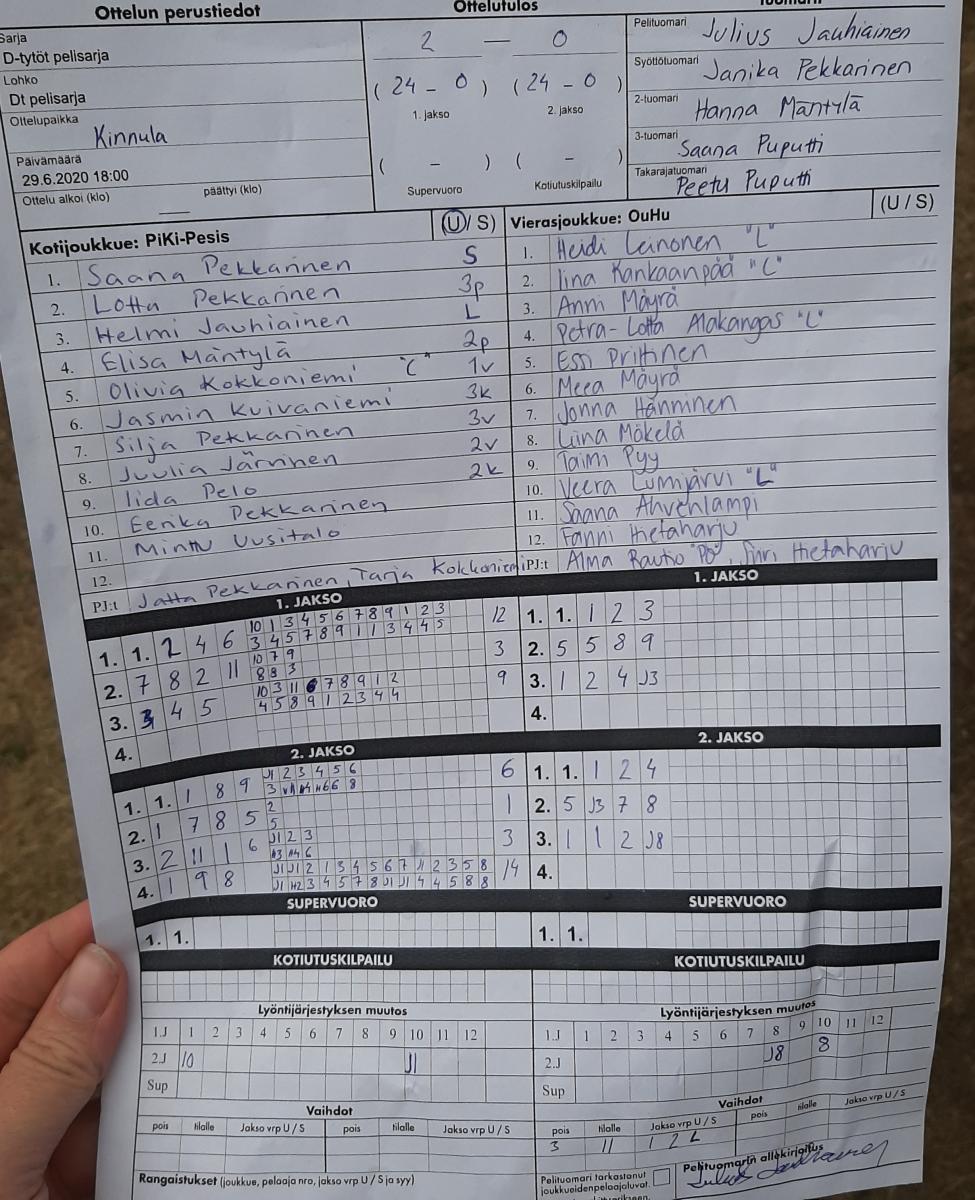 Ottelun perustiedot
Ottelutulos
Sarja
D-tytöt pelisarja
Lohko
Dt pelisarja
Ottelupaikka
Kinnula
Päivämäärä
29.6.2020 18:00
Ottelu alkoi (klo) päättyi (klo)
2 — 0
(24 - 0) (24 - 0)
1. jakso 2. jakso
( - ) ( - )
Supervuoro Kotiutuskilpailu
Pelituomari Julius Jauhiainen
Syöttötuomari Janika Pekkarinen
2-tuomari Hanna Mäntylä
3-tuomari Saana Puputti
Takarajatuomari Peetu Puputti
Kotijoukkue: PiKi-Pesis (U / S)
1. Saana Pekkarinen S
2. Lotta Pekkarinen 3p
3. Helmi Jauhiainen L
4. Elisa Mäntylä 2p
5. Olivia Kokkoniemi "C" 1v
6. Jasmin Kuivaniemi 3k
7. Silja Pekkarinen 3v
8. Juulia Järvinen 2v
9. Iida Pelo 2k
10. Eerika Pekkarinen
11. Minttu Uusitalo
12.
PJ:t Jatta Pekkarinen, Tarja Kokkoniemi
Vierasjoukkue: OuHu (U / S)
1. Heidi Leinonen "L"
2. Iina Kankaanpää "C"
3. Anni Mäyrä
4. Petra-Lotta Alakangas "L"
5. Essi Prittinen
6. Meea Mäyrä
7. Jonna Hänninen
8. Liina Mäkelä
9. Taimi Pyy
10. Veera Lumijärvi "L"
11. Saana Ahvenlampi
12. Fanni Hietaharju
PJ:t Alma Rautio "PÖ", Hietaharju
1. JAKSO
1. 1. 2 4 6 10 1 3 4 5 6 7 8 9 1 2 3 12
3 4 5 7 8 9 1 1 3 4 4 5
2. 7 8 2 11 10 7 9 3
8 8 3
3. 3 4 5 10 3 11 6 7 8 9 1 2 9
4 5 8 9 1 2 3 4 4
4.
2. JAKSO
1. 1. 1 8 9 J1 2 3 4 5 6 6
2. 1 7 8 5 2 1
5
3. 2 11 1 6 J1 2 3 3
4. 1 9 8 J1 J1 2 1 3 4 5 6 7 J1 2 3 5 8 14
J1 H2 3 4 5 7 8 J1 J1 4 4 5 8 8
SUPERVUORO
1. 1.
KOTIUTUSKILPAILU
1. JAKSO
1. 1. 1 2 3
2. 5 5 8 9
3. 1 2 4 J3
4.
2. JAKSO
1. 1. 1 2 4
2. 5 J3 7 8
3. 1 1 2 J8
4.
SUPERVUORO
1. 1.
KOTIUTUSKILPAILU
Lyöntijärjestyksen muutos
1.J 1 2 3 4 5 6 7 8 9 10 11 12
2.J 10 J1
Sup
Vaihdot
pois tilalle Jakso vrp U / S pois tilalle Jakso vrp U / S
Rangaistukset (joukkue, pelaaja nro, jakso vrp U / S ja syy)
Lyöntijärjestyksen muutos
1.J 1 2 3 4 5 6 7 8 9 10 11 12
2.J J8 8
Sup
Vaihdot
pois tilalle Jakso vrp U / S pois tilalle Jakso vrp U / S
3 11 1 2 L
Pelituomari tarkastanut
joukkueidenpelaajaluvat.
Pelituomarin allekirjoitus